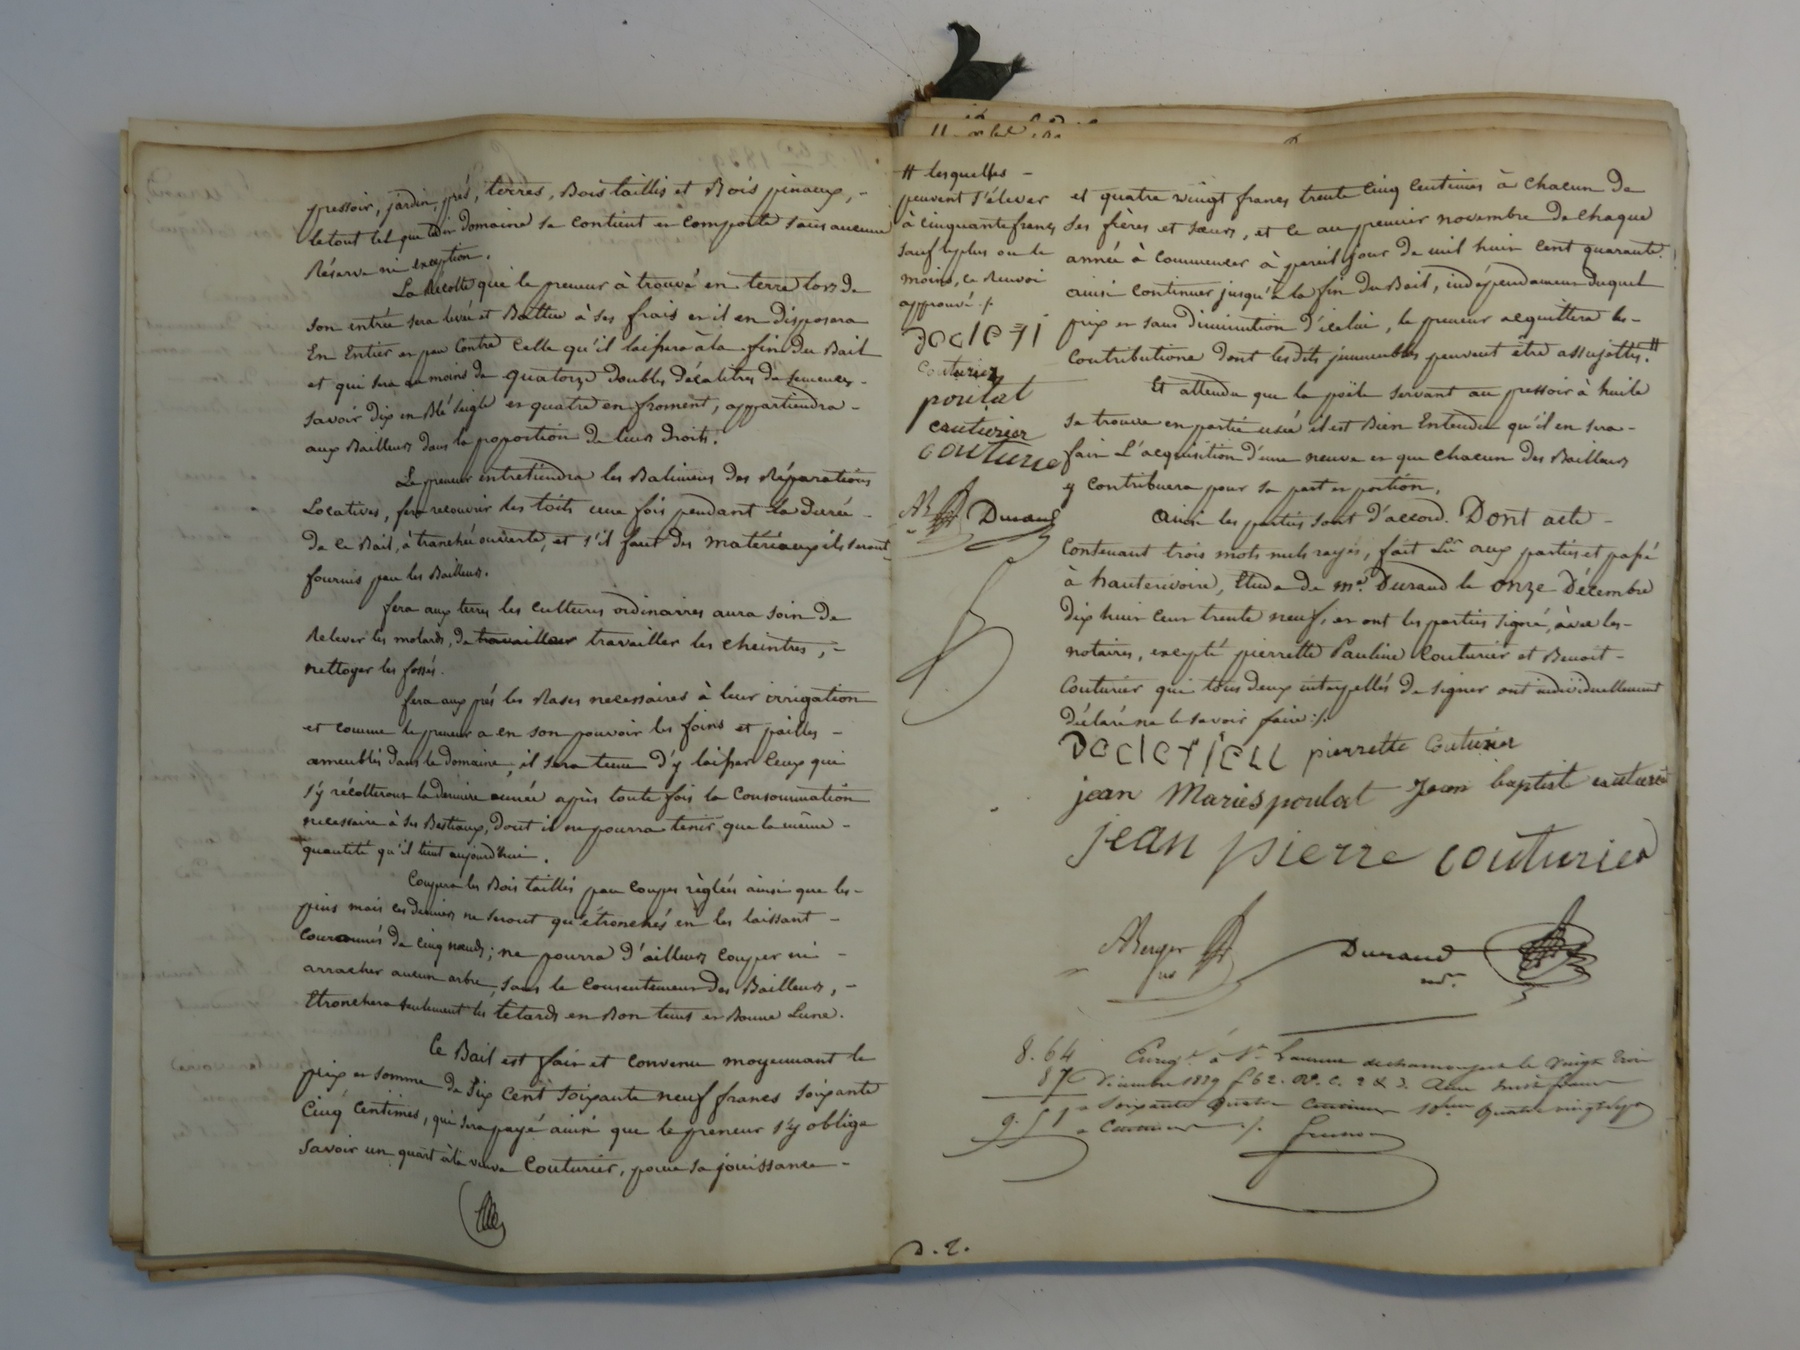 pressoir, jardin, prés, terres, Bois taillis et Bois pinaux, -
le tout tel que ledit Domaine se contient et comporte sans aucune
Réserve ni exception.
La Récolte que le preneur a trouvé en terre lors de
son entrée sera levée et Battue à ses frais et il en disposera
En Entier en par contre celle qu'il laissera à la fin du Bail
et qui sera au moins de quatorze doubles Décalitres de semences -
savoir dix en Blé seigle et quatre en froment, appartiendra -
aux Bailleurs dans la proportion de leurs droits.
Le preneur entretiendra les Batimens des Réparations
Locatives, fera recouvrir les toits une fois pendant la durée -
de ce Bail, à tranchée ouverte, et s'il faut des matériaux ils seront
fournis par les Bailleurs.
fera aux terres les cultures ordinaires aura soin de
Relever les molards, de travailler travailler les cheintres, -
nettoyer les fossés.
fera aux prés les Rases necessaires à leur irrigation
et comme le preneur a en son pouvoir les foins et pailles -
ameublés dans le domaine, il sera tenu d'y laisser ceux qui
s'y récolteront la dernière année après toute fois la Consommation
necessaire à ses Bestiaux, dont il ne pourra tenir que la même -
quantité qu'il tient aujourd'hui.
Coupera les Bois taillis par coupes règlées ainsi que les -
pins mais ces derniers ne seront qu'étronchés en les laissant -
couronnés de cinq nœuds; ne pourra d'ailleurs couper ni -
arracher aucun arbre, sans le Consentement des Bailleurs, -
Etronchera seulement les tétards en Bon tems et Bonne Lune.
Ce Bail est fait et convenu moyennant le
prix et somme de Six Cent Soixante neuf francs soixante
Cinq Centimes, qui sera payé ainsi que le preneur s'y oblige
Savoir un quart à la veuve Couturier, pour sa jouissance -
# lesquelles -
peuvent s'élever
à cinquante francs
sauf le plus ou le
moins, ce Renvoi
approuvé ./.
Couturier
poulat
couturier
couturie
AB Durand
et quatre vingt francs trente Cinq Centimes à Chacun de
ses frères et sœurs, et ce au premier novembre de chaque
année à Commencer à pareil jour de mil huit cent quarante.
ainsi continuer jusqu'à la fin du Bail, indépendament duquel
prix et sans Diminution d'icelui, le preneur acquittera les -
Contributions dont les dits immeubles peuvent être assujettis. #
Et attendu que la poële servant au pressoir à huile
se trouve en partie usée il est Bien Entendu qu'il en sera -
fait L'acquisition d'une neuve et que chacun des Bailleurs
y contribuera pour sa part et portion.
Ainsi les parties sont d'accord. Dont acte -
Contenant trois mots nuls rayés, fait Lû aux parties et passé
à hauterivoire, Etude de me. Durand le onze Décembre
dix huit cent trente neuf, et ont les parties signé, avec les -
notaires, excepté pierrette Pauline Couturier et Benoit -
Couturier qui tous deux interpellés de signer ont individuellement
déclaré ne le savoir faire ./.
pierrette Couturier
jean Maries poulat Jean baptist couturié
jean pierre couturier
ABerger
Durand
not.
8.64
87
9.51
Enreg.t à St Laurent de chamousset le vingt trois
Décembre 1839 f° 62. V°. c. 2 & 3. Reçu huit francs
Soixante quatre Centimes 10ème quatre vingt sept
Centimes ./.
D. 2.